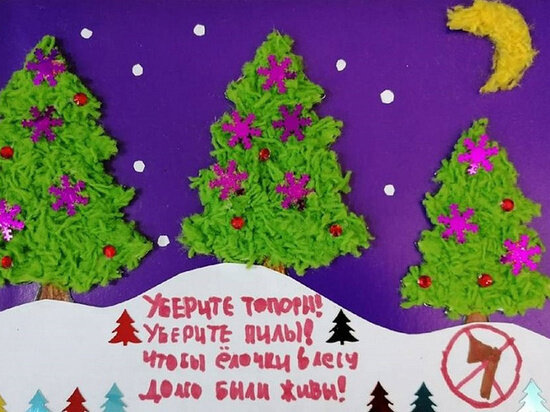 УБЕРИТЕ ТОПОРЫ!
УБЕРИТЕ ПИЛЫ!
ЧТОБЫ ЁЛОЧКИ В ЛЕСУ
ДОЛГО БЫЛИ ЖИВЫ!